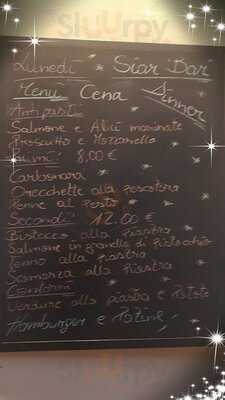 Sluurpy
Lunedì Star Bar
Menù Cena Dinner
Antipasti
Salmone e Alici marinate
Prosciutto e Mozzarella
Primi: 8,00 €
Carbonara
Orecchette alla pescatora
Penne al Pesto
Secondi: 12.00 €
Bistecca alla piastra
Salmone in granella di pistacchio
alla piastra
Scamorza alla piastra
Contorni
Verdure alla piastra e Patate
Hamburger e Patine
Sluurpy